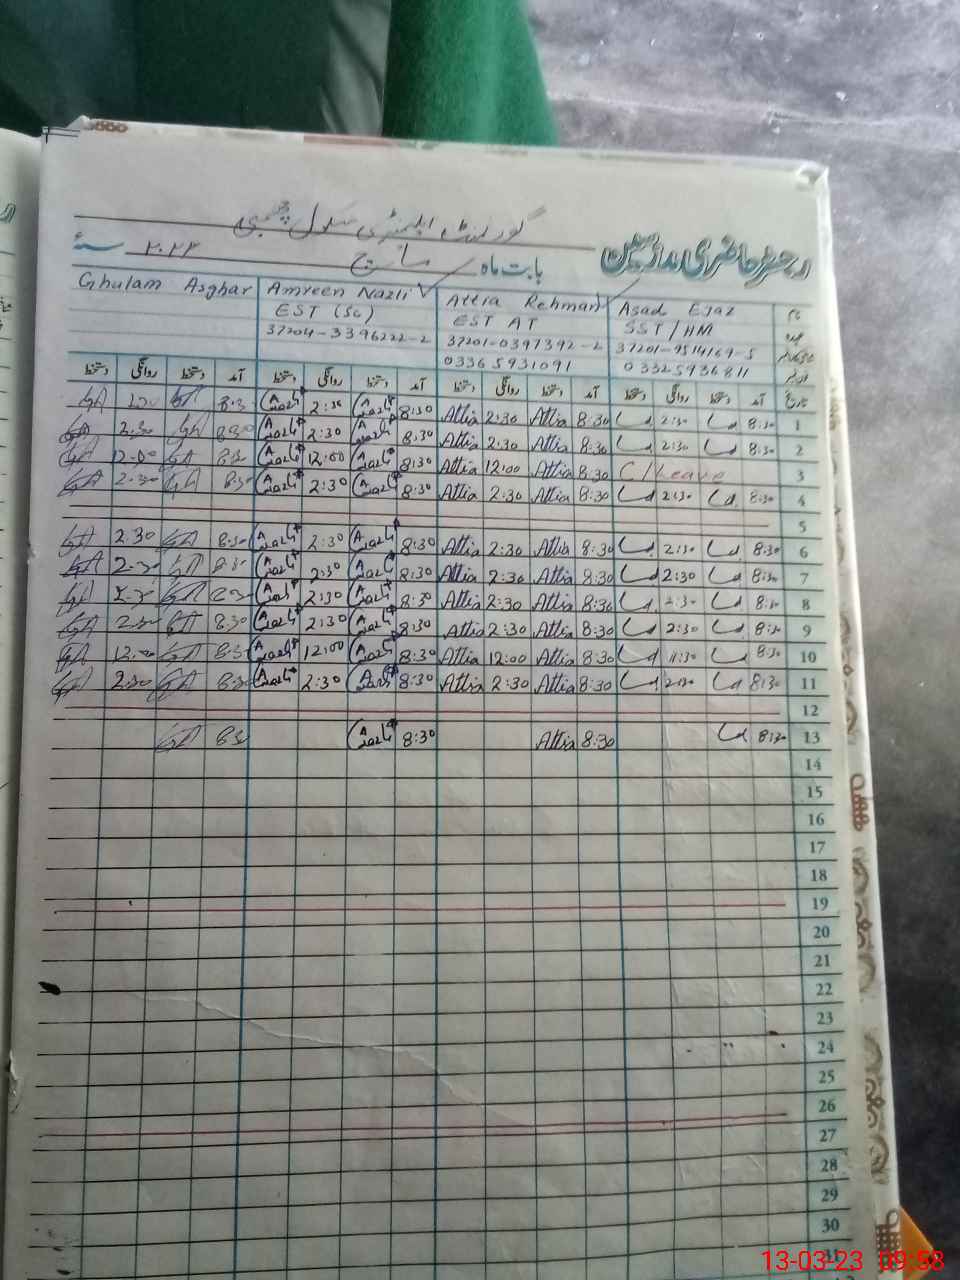 رجسٹر حاضری مدرسین گورنمنٹ ایلیمنٹری سکول
بابت ماہ مارچ ۲۰۲۳ سنہ
Ghulam Asghar Amreen Nazli Attia Rehman Asad Ejaz نام
EST (SC) EST AT SST/HM عہدہ
37204-3396222-2 37201-0397392-2 37201-9514169-5
03365931091 03325936811
دستخط روانگی دستخط آمد دستخط روانگی دستخط آمد دستخط روانگی دستخط آمد دستخط روانگی دستخط آمد تاریخ
GA GA 8:3 2:30 8:30 Attia 2:30 Attia 8:30 2:30 8:30 1
GA 2:30 GA 8:30 2:30 8:30 Attia 2:30 Attia 8:30 2:30 8:30 2
GA 12:00 GA 8:30 12:00 8:30 Attia 12:00 Attia 8:30 C/Leave 3
GA 2:30 GA 8:30 2:30 8:30 Attia 2:30 Attia 8:30 2:30 8:30 4
5
GA 2:30 GA 8:30 2:30 8:30 Attia 2:30 Attia 8:30 2:30 8:30 6
GA 2:30 GA 8:30 2:30 8:30 Attia 2:30 Attia 8:30 2:30 8:30 7
GA 2:30 GA 8:30 2:30 8:30 Attia 2:30 Attia 8:30 2:30 8:30 8
GA 2:30 GA 8:30 2:30 8:30 Attia 2:30 Attia 8:30 2:30 8:30 9
GA 12:00 GA 8:30 12:00 8:30 Attia 12:00 Attia 8:30 11:30 8:30 10
GA 2:30 GA 8:30 2:30 8:30 Attia 2:30 Attia 8:30 2:30 8:30 11
12
GA 8:30 8:30 Attia 8:30 8:30 13
14
15
16
17
18
19
20
21
22
23
24
25
26
27
28
29
30
31
13-03-23 09:58